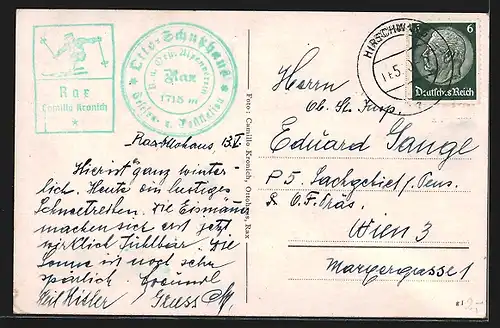 Rax
Camillo Kronich
Otto-Schutzhaus
D. u. Oest. Alpenverein
Rax
1715 m
HIRSCHW
6
Deutsches Reich
Raxottohaus, 13.V.
Hier ist ganz winter-
lich. Heute ein lustiges
Schneetreiben. Die Eismänn
machen sich erst jetzt
wirklich fühlbar. Die
Sonne ist noch sehr
spärlich. Freundl
Heil Hitler Gruss
Foto: Camillo Kronich, Ottohaus, Rax
Herrn
Ob. St. Insp.
Eduard Lange
P 5 Sachgebiet/Pens.
b. O.F. Präs.
Wien 3
Marxergasse 1